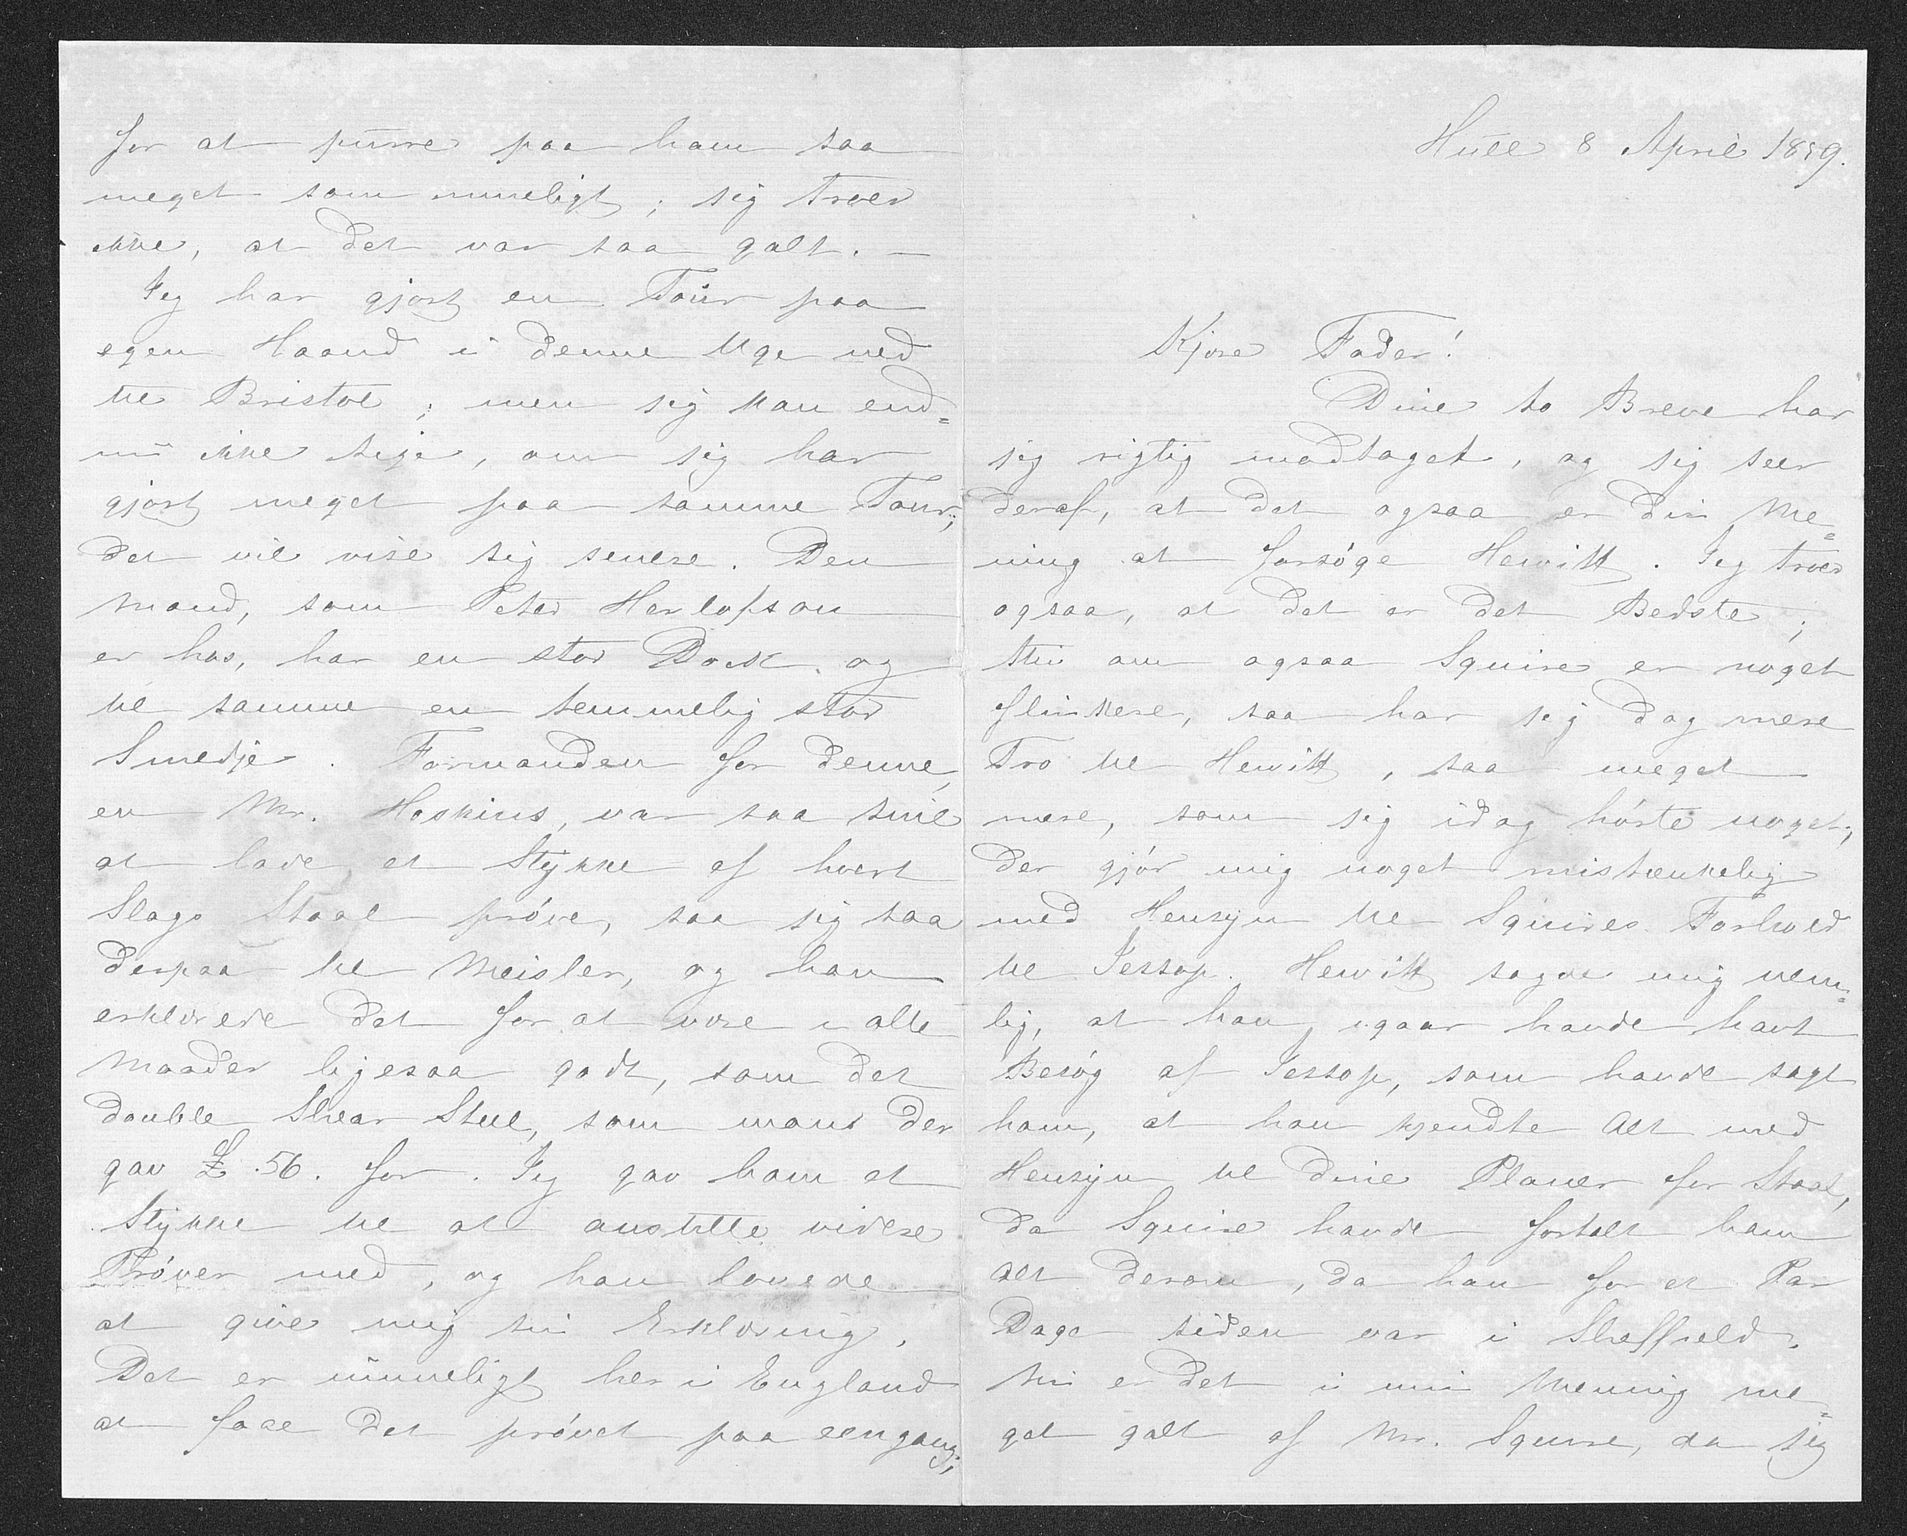 Hull 8 April 1859.
Kjære Fader!
Dine to Breve har
jeg rigtig modtaget, og jeg seer
deraf, at det ogsaa er din Me=
ning at forsöge Hewitt. Jeg troer
ogsaa, at det er det Bedste;
thi om ogsaa Squire er noget
flinkere, saa har jeg dog mere
Tro til Hewitt, saa meget
mere, som jeg idag hörte noget,
der gjör mig noget mistænkelig
med Hensyn til Squires Forhold
til Jessop. Hewitt sagde mig nem=
lig, at han igaar havde havt
Besög af Jessop, som havde sagt
ham, at han kjendte Alt med
Hensyn til dine Planer for Staal,
da Squire havde fortalt ham
alt derom, da han for et Par
Dage siden var i Sheffield.
Nu er det i min Mening me=
get galt af Mr. Squire, da jeg
for at purre paa ham saa
meget som mueligt; jeg troer
ikke, at det var saa galt. —
Jeg har gjort en Tour paa
egen Haand i denne Uge ned
til Bristol; men jeg kan end=
nu ikke sige, om jeg har
gjort meget paa samme Tour;
det vil vise sig senere. Den
Mand, som Peter Herlofson
er hos, har en stor Dock og
til samme en temmelig stor
Smedje. Formanden for denne,
en Mr. Hoskins, var saa snil
at lave et Stykke af hvert
Slags Staal pröve, saa jeg saa
derpaa til Meisler, og han
erklærede det for at være i alle
Maader ligesaa godt, som det
double Shear Steel, som mans der
gav £ .56. for. Jeg gav ham et
Stykke til at anstille videre
Pröver med, og han lovede
at give mig sin Erklæring.
Det er umueligt her i England
at faae det prövet paa eengang;